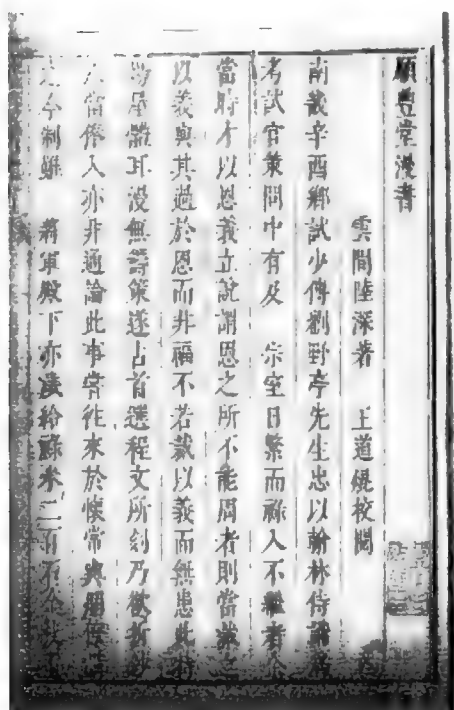 願豐堂漫書
雲間陸深著 王道焜校閱
南畿辛酉鄉試少傅劉野亭先生忠以翰林侍講
考試官策問中有及 宗室日繁而祿入不繼者
當時才以恩義立說謂恩之所不能周者則當裁
以義與其過於恩而井福不若裁以義而無患此
耳没無籌策遂占首選程文所刻乃
人當儕入亦井通論此事客往來於懷常與朋
今制 將軍殿下亦減給祿米二百石